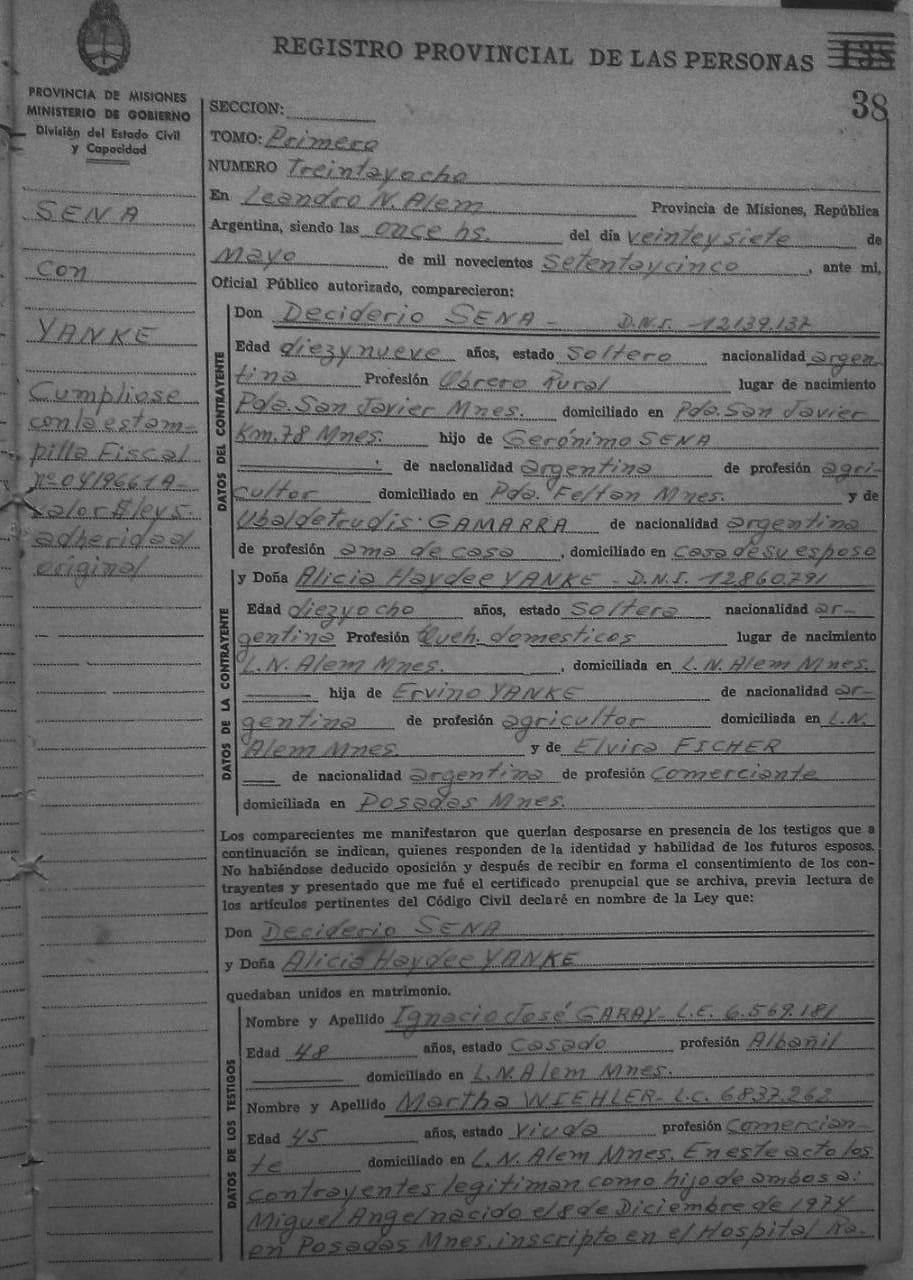 REGISTRO PROVINCIAL DE LAS PERSONAS 135
38
PROVINCIA DE MISIONES
MINISTERIO DE GOBIERNO
División del Estado Civil
y Capacidad
SENA
con
YANKE
Cumpliose
con la estam-
pilla Fiscal
nº 04196619-
valor $ley 5.
adherida al
original
SECCION:
TOMO: Primero
NUMERO Treintayocho
En Leandro N. Alem Provincia de Misiones, República
Argentina, siendo las once hs. del día veintey siete de
Mayo de mil novecientos Setentaycinco, ante mi,
Oficial Público autorizado, comparecieron:
DATOS DEL CONTRAYENTE
Don Deciderio SENA - D.N.I. -12139.137
Edad diezynueve años, estado Soltero nacionalidad argen
tina Profesión Obrero Rural lugar de nacimiento
Pdo. San Javier Mnes. domiciliado en Pdo. San Javier
Km. 78 Mnes. hijo de Gerónimo SENA
de nacionalidad argentina de profesión agri-
cultor domiciliado en Pdo. Feltan Mnes. y de
Ubaldetrudis GAMARRA de nacionalidad argentina
de profesión ama de casa, domiciliado en casa de su esposo
DATOS DE LA CONTRAYENTE
y Doña Alicia Haydee YANKE - D.N.I. 12.860.791
Edad diezyocho años, estado Soltera nacionalidad ar-
gentina Profesión Queh. domesticos lugar de nacimiento
L.N. Alem Mnes., domiciliada en L.N. Alem Mnes.
hija de Ervino YANKE de nacionalidad ar-
gentina de profesión agricultor domiciliada en L.N.
Alem Mnes y de Elvira FICHER
de nacionalidad argentina de profesión Comerciante
domiciliada en Posadas Mnes.
Los comparecientes me manifestaron que querían desposarse en presencia de los testigos que a
continuación se indican, quienes responden de la identidad y habilidad de los futuros esposos.
No habiéndose deducido oposición y después de recibir en forma el consentimiento de los con-
trayentes y presentado que me fué el certificado prenupcial que se archiva, previa lectura de
los artículos pertinentes del Código Civil declaré en nombre de la Ley que:
Don Deciderio SENA
y Doña Alicia Haydee YANKE
quedaban unidos en matrimonio.
DATOS DE LOS TESTIGOS
Nombre y Apellido Ignacio José GARAY- L.E. 6.569.181
Edad 48 años, estado Casado profesión Albañil
domiciliado en L.N. Alem Mnes.
Nombre y Apellido Martha WIEHLER- L.C. 6837.262
Edad 45 años, estado Viuda profesión Comercian-
te domiciliado en L.N. Alem Mnes. En este acto los
contrayentes legitiman como hijo de ambos a:
Miguel Angel nacido el 8 de Diciembre de 1974
en Posadas Mnes. inscripto en el Hospital Ra.